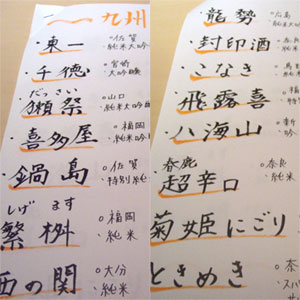 九州
・東一 ○佐賀 ○純米大吟
・千徳 ○宮崎 大吟醸
だっさい
・獺祭 ○山口 ○純米大吟醸
・喜多屋 ○福岡 ○純米吟
・鍋島 ○佐賀 特別純米
しげ ます
・繁桝 ○福岡 ○純米
西の関 ○大分 ○純米
・龍勢 ○広島 ○純米
・封印酒
・こなき ○純米
・飛露喜 ○純米
・八海山 ○吟
春鹿
・超辛口 ○奈良 ○純米
菊姫にごり
ときめき ○奈